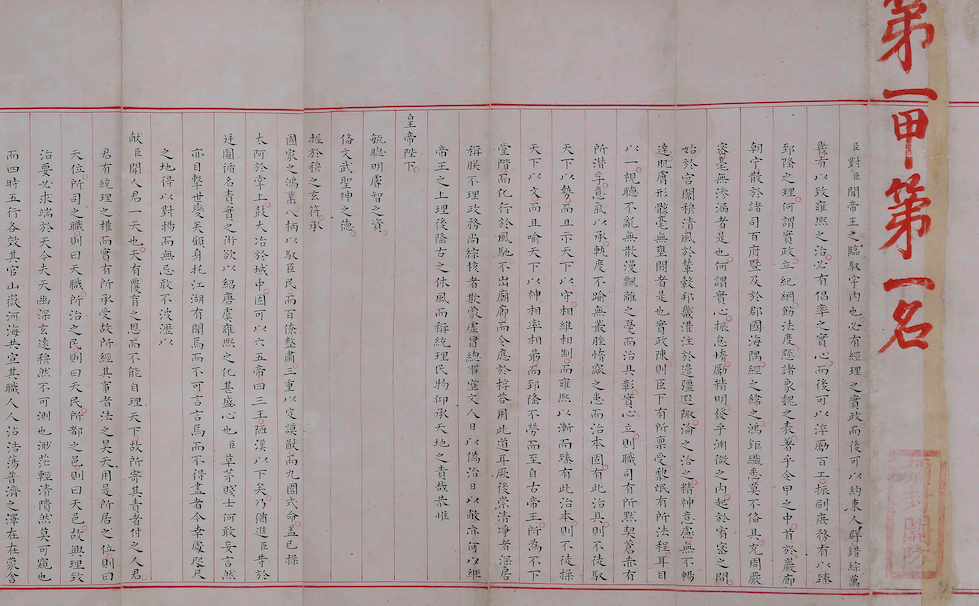 第一甲第一名
臣對臣聞帝王之臨馭宇內也必有經理之實政而後可以約束人群錯綜萬
幾有以致雍熙之治必有倡率之實心而後可以淬勵百工振刷庶務有以臻
郅隆之理何謂實政立紀綱飭法度懸諸象魏之表著乎令甲之中首於巖廊
朝宁散於諸司百府暨及於郡國海隅經之緯之鴻鉅纖悉莫不備具充周嚴
密毫無滲漏者是也何謂實心振怠惰勵精明發乎淵微之內起於宥密之間
始於宮闈穆清風於輦轂邦畿灌注於邊疆遐陬淪之洽之精神意慮無不暢
達肌膚形骸毫無壅閼者是也實政陳則臣下有所稟受黎氓有所法程耳目
以一視聽不亂無散漫飄離之憂而治具彰實心立則職司有所默契蒼赤有
所潛孚意氣以承軌度不踰無叢脞惰窳之患而治本固有此治具則不徒馭
天下以勢而且示天下以守相維相制而雍熙以漸而臻有此治本則不徒操
天下以文而且喻天下以神相率相勗而郅隆不勞而至自古帝王所為不下
堂階而化行於風馳不出廟廊而令應於桴答用此道耳厥後崇清淨者深居
稱朕不理政務尚綜核者欺蒙虛冒總事空文人日以偽治日以敝亦何以継
帝王之上理後隆古之休風而稱統理民物仰承天地之責哉恭惟
皇帝陛下
毓聰明睿智之資
備文武聖神之德
握於穆之玄符承
國家之鴻業八柄以馭臣民而百僚整肅三重以定謨猷而九圍式命蓋已操
太阿於掌上鼓大冶於域中固可以六五帝四三王陋漢以下矣乃猶進臣等於
廷圖循名責實之術欲以紹唐虞雍熙之化甚盛心也臣草茅賤士何敢妄言然
亦目擊世變矣顧身托江湖有聞焉而不可言言焉而不得盡者今幸處咫尺
之地得以對揚而無忌敢不披瀝以
献臣聞人君一天也天有覆育之恩而不能自理天下故所寄其責者付之人君
君有統理之權而實有所承受故所經其事者法之昊天用是所居之位則曰
天位所司之職則曰天職所治之民則曰天民所都之邑則曰天邑故興理致
治要必求端於天今夫天幽深玄遠穆然不可測也渺茫輕清隤然莫可窺也
而四時五行各效其官山嶽河海共宣其職人人沾活蕩普濟之澤在在蒙含